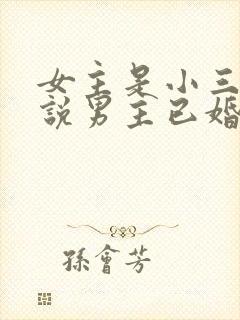 女主是小三
說男主已婚
孫會芳